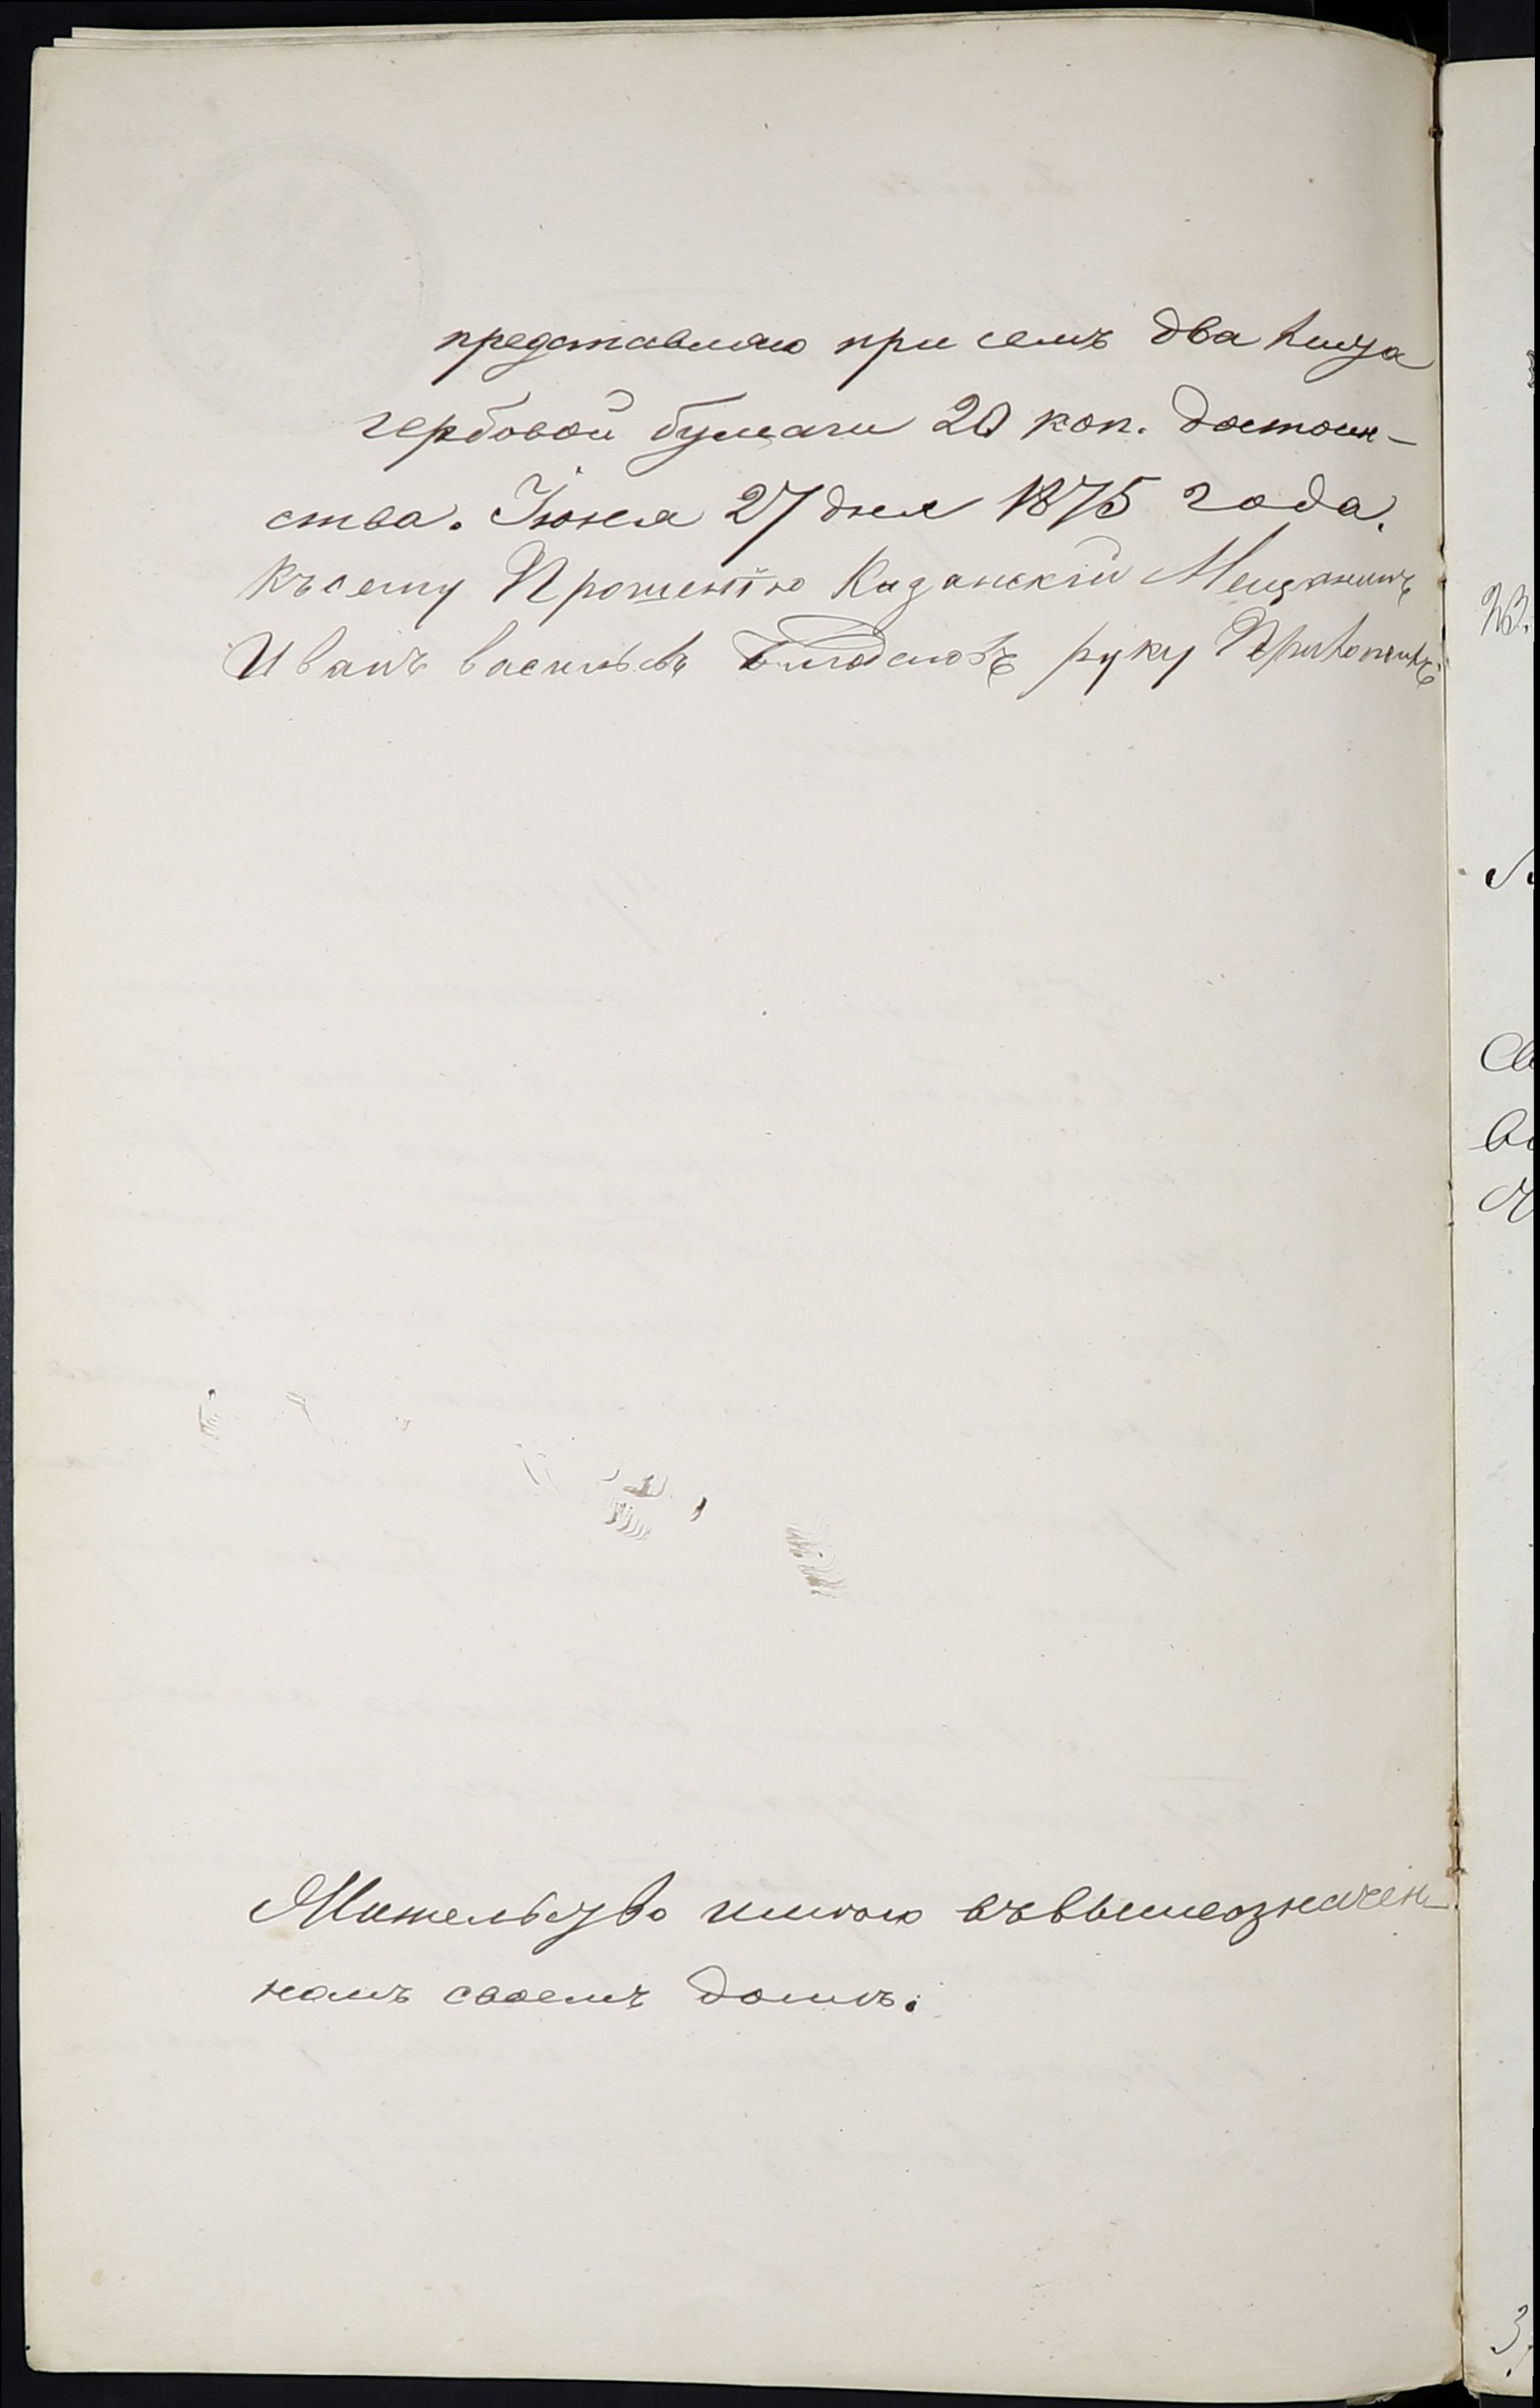 представляю при семъ два листа
гербовой бумаги 20 коп. достоин-
ства. Іюня 27 дня 1875 года.
Къ сему Прошенію Казанскій Мещанинъ
Иванъ Васильевъ руку Приложилъ
Жительство имѣю въ вышеозначен-
номъ своемъ домѣ.